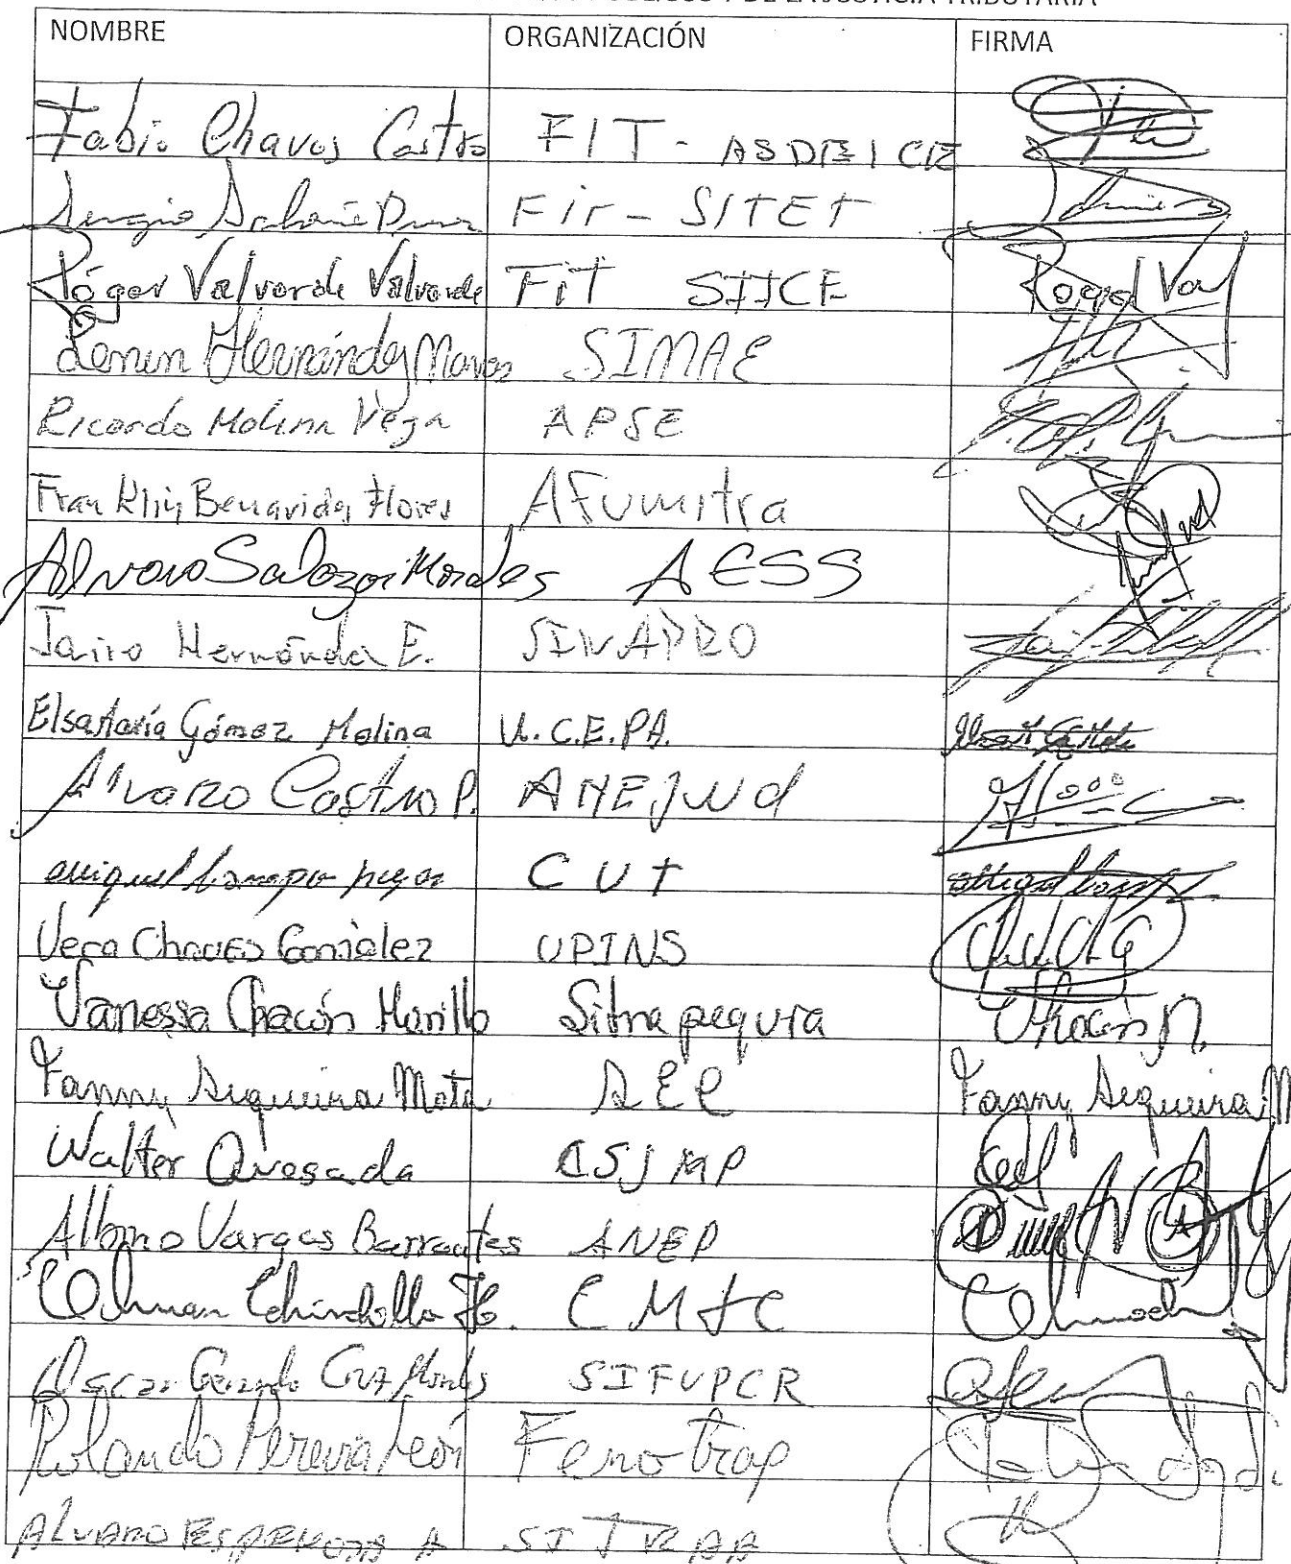 DE LA JUSTICIA TRIBUTARIA
NOMBRE ORGANIZACIÓN FIRMA
Fabio Chaves Castro FIT - ASDEICE
Sergio FiT - SITET
Róger Valverde Valverde FiT SIICE Roger Val
Lenin Hernández Navas SINAE
Ricardo Molina Vega APSE
Franklin Benavides Flores AFumitra
Alvaro Salazar Morales AESS
Jairo Hernández E. SINAPRO
Elsa María Gómez Molina U.C.E.P.A.
Alvaro Castro P. ANEJUD
miguel CUT
Vera Chaves González UPINS
Vanessa Chacón Murillo Sitrapequia VChacón M.
Fanny Sequeira Mata AEC Fanny Sequeira M
Walter Quesada CSJMP
Albino Vargas Barrantes ANEP
Olman Chinchilla H. CMTC
Oscar Gerardo Cruz Morales SIFUPCR
Rolando Pereira León Fenotrap
ALVARO ESPINOZA A SITRAA